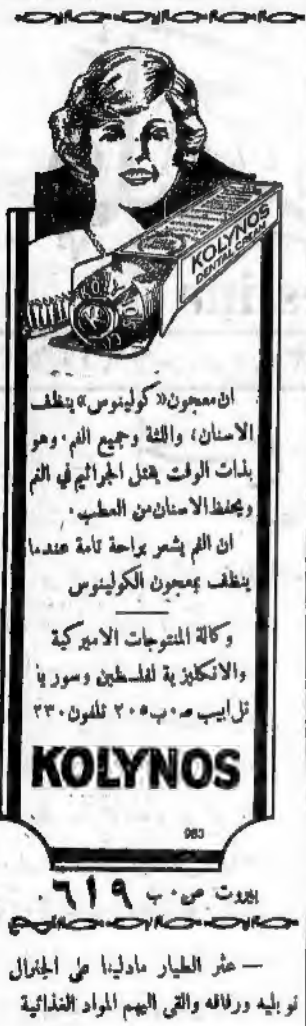 KOLYNOS
DENTAL CREAM
ان معجون «كولينوس» ينظف
الاسنان، واللثة وجميع الفم. وهو
بذات الوقت يقتل الجراثيم في الفم
ويحفظ الاسنان من العطب.
ان الفم يشعر براحة تامة عندما
ينظف بمعجون الكولينوس
وكالة المنتوجات الاميركية
والانكليزية لفلسطين وسوريا
تل ابيب ص.ب ٢٠٥ تلفون ٢٣٠
KOLYNOS
بيروت ص.ب ٦١٩.
— عثر الطيار مادلينا على الجنرال
نوبليه ورفاقه والقى اليهم المواد الغذائية